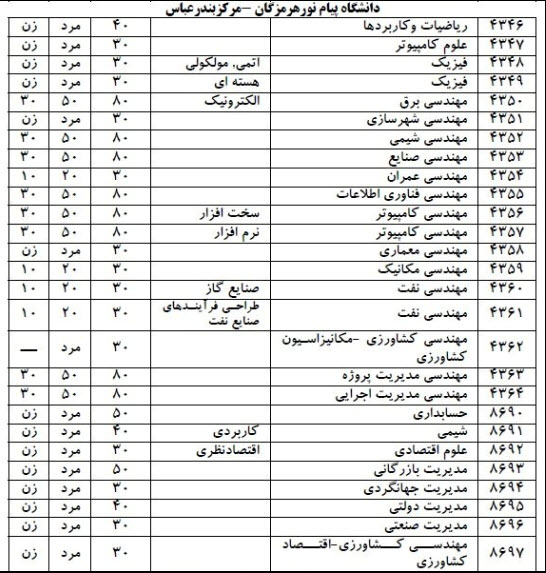 دانشگاه پیام نور هرمزگان – مرکز بندر عباس
۴۳۴۶ ریاضیات و کاربردها ۴۰ مرد زن
۴۳۴۷ علوم کامپیوتر ۳۰ مرد زن
۴۳۴۸ فیزیک اتمی، مولکولی ۳۰ مرد زن
۴۳۴۹ فیزیک هسته ای ۳۰ مرد زن
۴۳۵۰ مهندسی برق الکترونیک ۸۰ ۵۰ ۳۰
۴۳۵۱ مهندسی شهرسازی ۳۰ مرد زن
۴۳۵۲ مهندسی شیمی ۸۰ ۵۰ ۳۰
۴۳۵۳ مهندسی صنایع ۸۰ ۵۰ ۳۰
۴۳۵۴ مهندسی عمران ۳۰ ۲۰ ۱۰
۴۳۵۵ مهندسی فناوری اطلاعات ۸۰ ۵۰ ۳۰
۴۳۵۶ مهندسی کامپیوتر سخت افزار ۸۰ ۵۰ ۳۰
۴۳۵۷ مهندسی کامپیوتر نرم افزار ۸۰ ۵۰ ۳۰
۴۳۵۸ مهندسی معماری ۳۰ مرد زن
۴۳۵۹ مهندسی مکانیک ۳۰ ۲۰ ۱۰
۴۳۶۰ مهندسی نفت صنایع گاز ۳۰ ۲۰ ۱۰
۴۳۶۱ مهندسی نفت طراحی فرآیندهای ۳۰ ۲۰ ۱۰
صنایع نفت
۴۳۶۲ مهندسی کشاورزی -مکانیزاسیون ۳۰ مرد —
کشاورزی
۴۳۶۳ مهندسی مدیریت پروژه ۸۰ ۵۰ ۳۰
۴۳۶۴ مهندسی مدیریت اجرایی ۸۰ ۵۰ ۳۰
۸۶۹۰ حسابداری ۵۰ مرد زن
۸۶۹۱ شیمی کاربردی ۴۰ مرد زن
۸۶۹۲ علوم اقتصادی اقتصادنظری ۳۰ مرد زن
۸۶۹۳ مدیریت بازرگانی ۵۰ مرد زن
۸۶۹۴ مدیریت جهانگردی ۳۰ مرد زن
۸۶۹۵ مدیریت دولتی ۴۰ مرد زن
۸۶۹۶ مدیریت صنعتی ۳۰ مرد زن
۸۶۹۷ مهندسی کشاورزی-اقتصاد ۳۰ مرد زن
کشاورزی